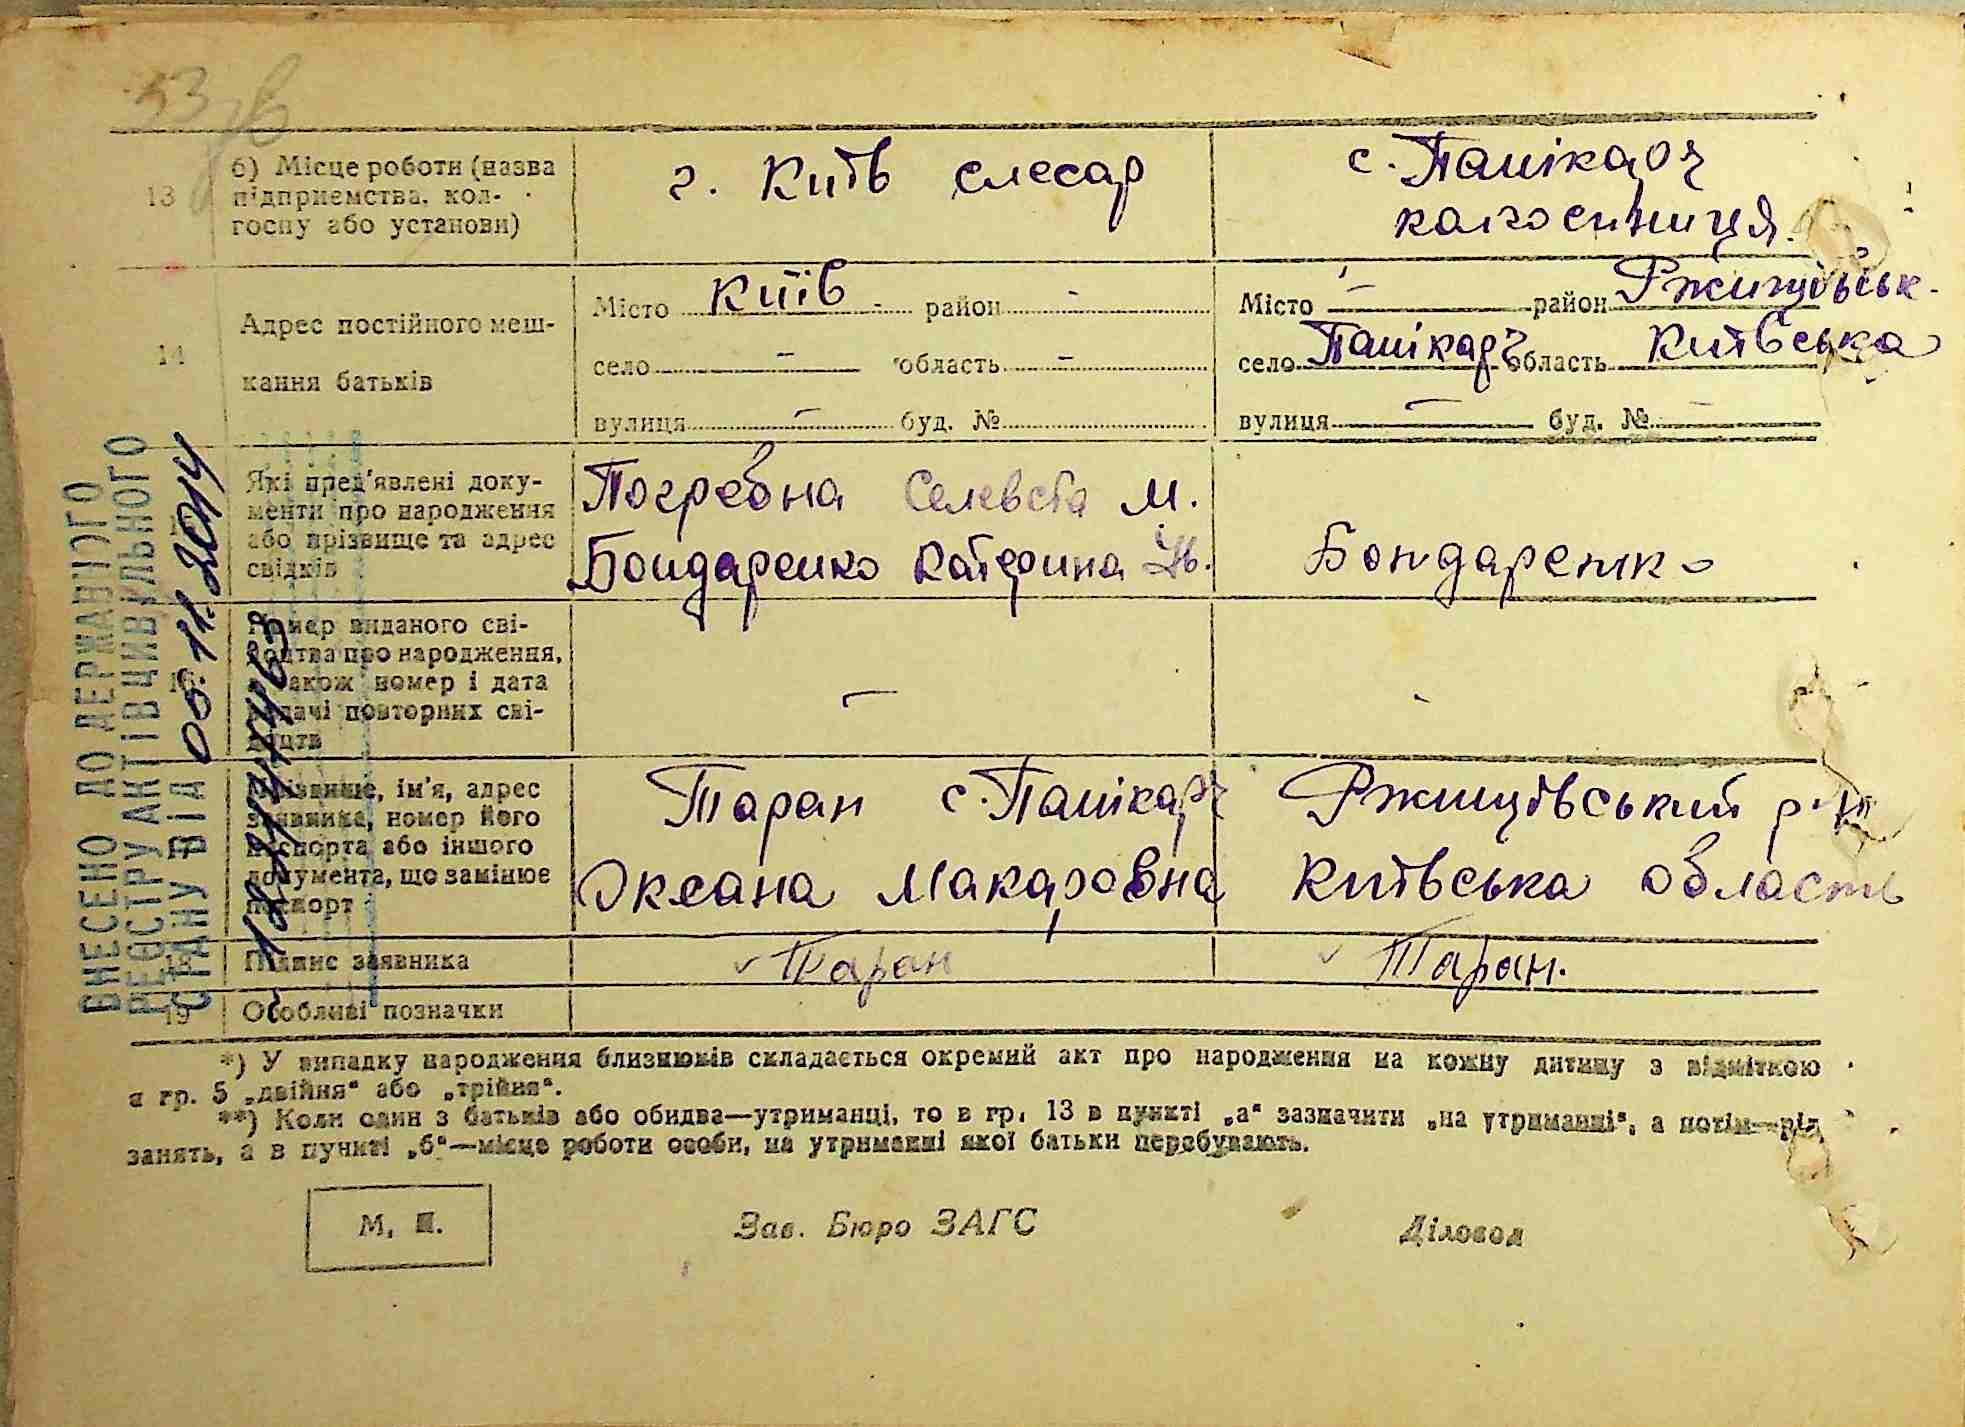 53 зв
13 б) Місце роботи (назва
підприємства, кол-
госпу або установи)
г. Київ слесар
с. Пашікарч
колгоспниця.
14 Адрес постійного меш-
кання батьків
Місто Київ - район -
село - область -
вулиця - буд. №
Місто - район Ржищівськ.
село Пашікарч область Київська
вулиця - буд. № -
Які пред'явлені доку-
менти про народження
або прізвище та адрес
свідків
Погребна Селевста М.
Бондаренко Катерина
Бондаренко
Номер виданого сві-
доцтва про народження,
також номер і дата
видачі повторних сві-
доцтв
-
Прізвище, ім'я, адрес
заявника, номер його
паспорта або іншого
документа, що замінює
паспорт
Таран с. Пашікарч Ржищівський р-н
Оксана Макаровна Київська область
Підпис заявника
Таран
Таран.
19 Особливі позначки
ВНЕСЕНО ДО ДЕРЖАВНОГО
РЕЄСТРУ АКТІВ ЦИВІЛЬНОГО
СТАНУ ВІД 05.11.2014
*) У випадку народження близнюків складається окремий акт про народження на кожну дитину з відміткою
в гр. 5 „двійня" або „трійня".
**) Коли один з батьків або обидва—утриманці, то в гр. 13 в пункті „а" зазначити „на утриманні", а потім—рід
занять, а в пункті „б"—місце роботи особи, на утриманні якої батьки перебувають.
М. П.
Зав. Бюро ЗАГС
Діловод